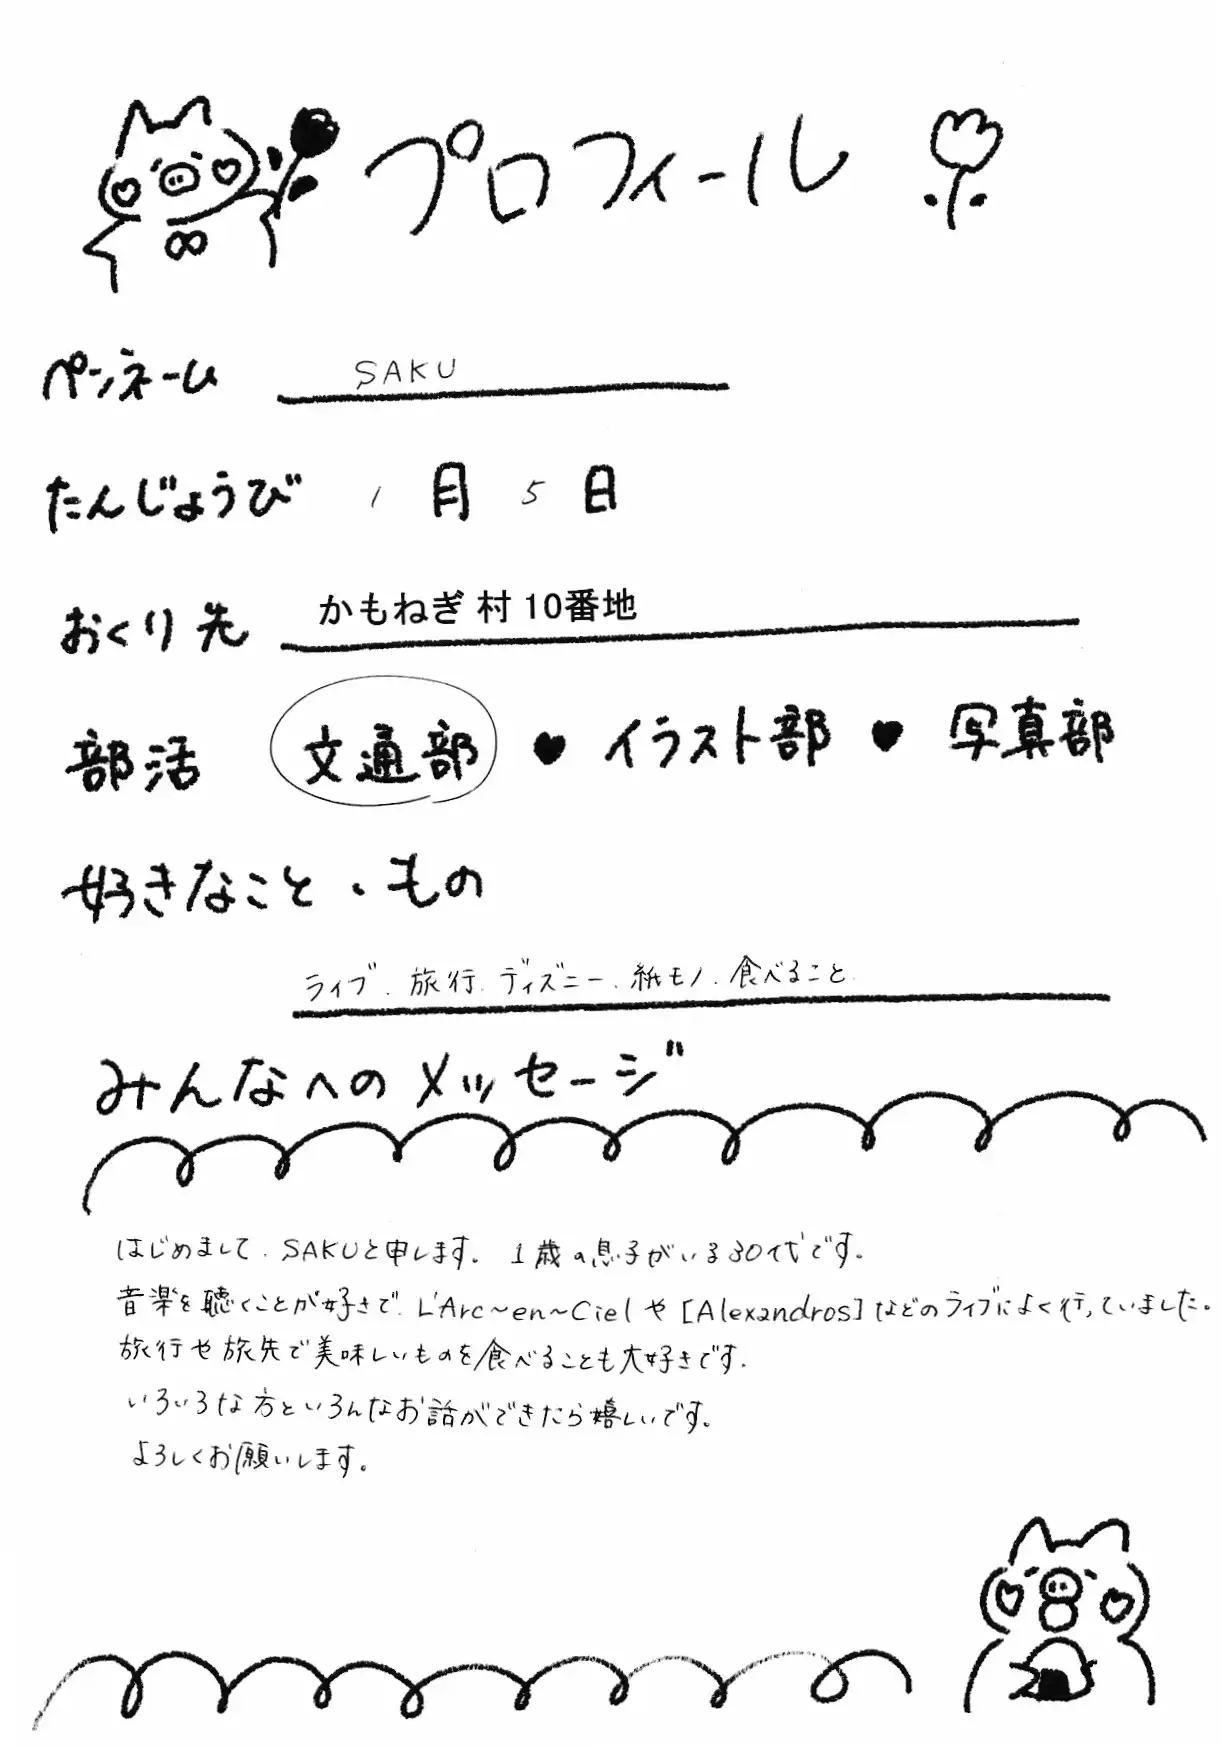 プロフィール
ペンネーム SAKU
たんじょうび 1月5日
おくり先 かもねぎ村10番地
部活 文通部 ♥ イラスト部 ♥ 写真部
好きなこと・もの
ライブ、旅行、ディズニー、紙モノ、食べること
みんなへのメッセージ
はじめまして、SAKUと申します。 1歳の息子がいる30代です。
音楽を聴くことが好きで、L'Arc~en~Cielや[Alexandros]などのライブによく行っていました。
旅行や旅先で美味しいものを食べることも大好きです。
いろいろな方といろんなお話ができたら嬉しいです。
よろしくお願いします。